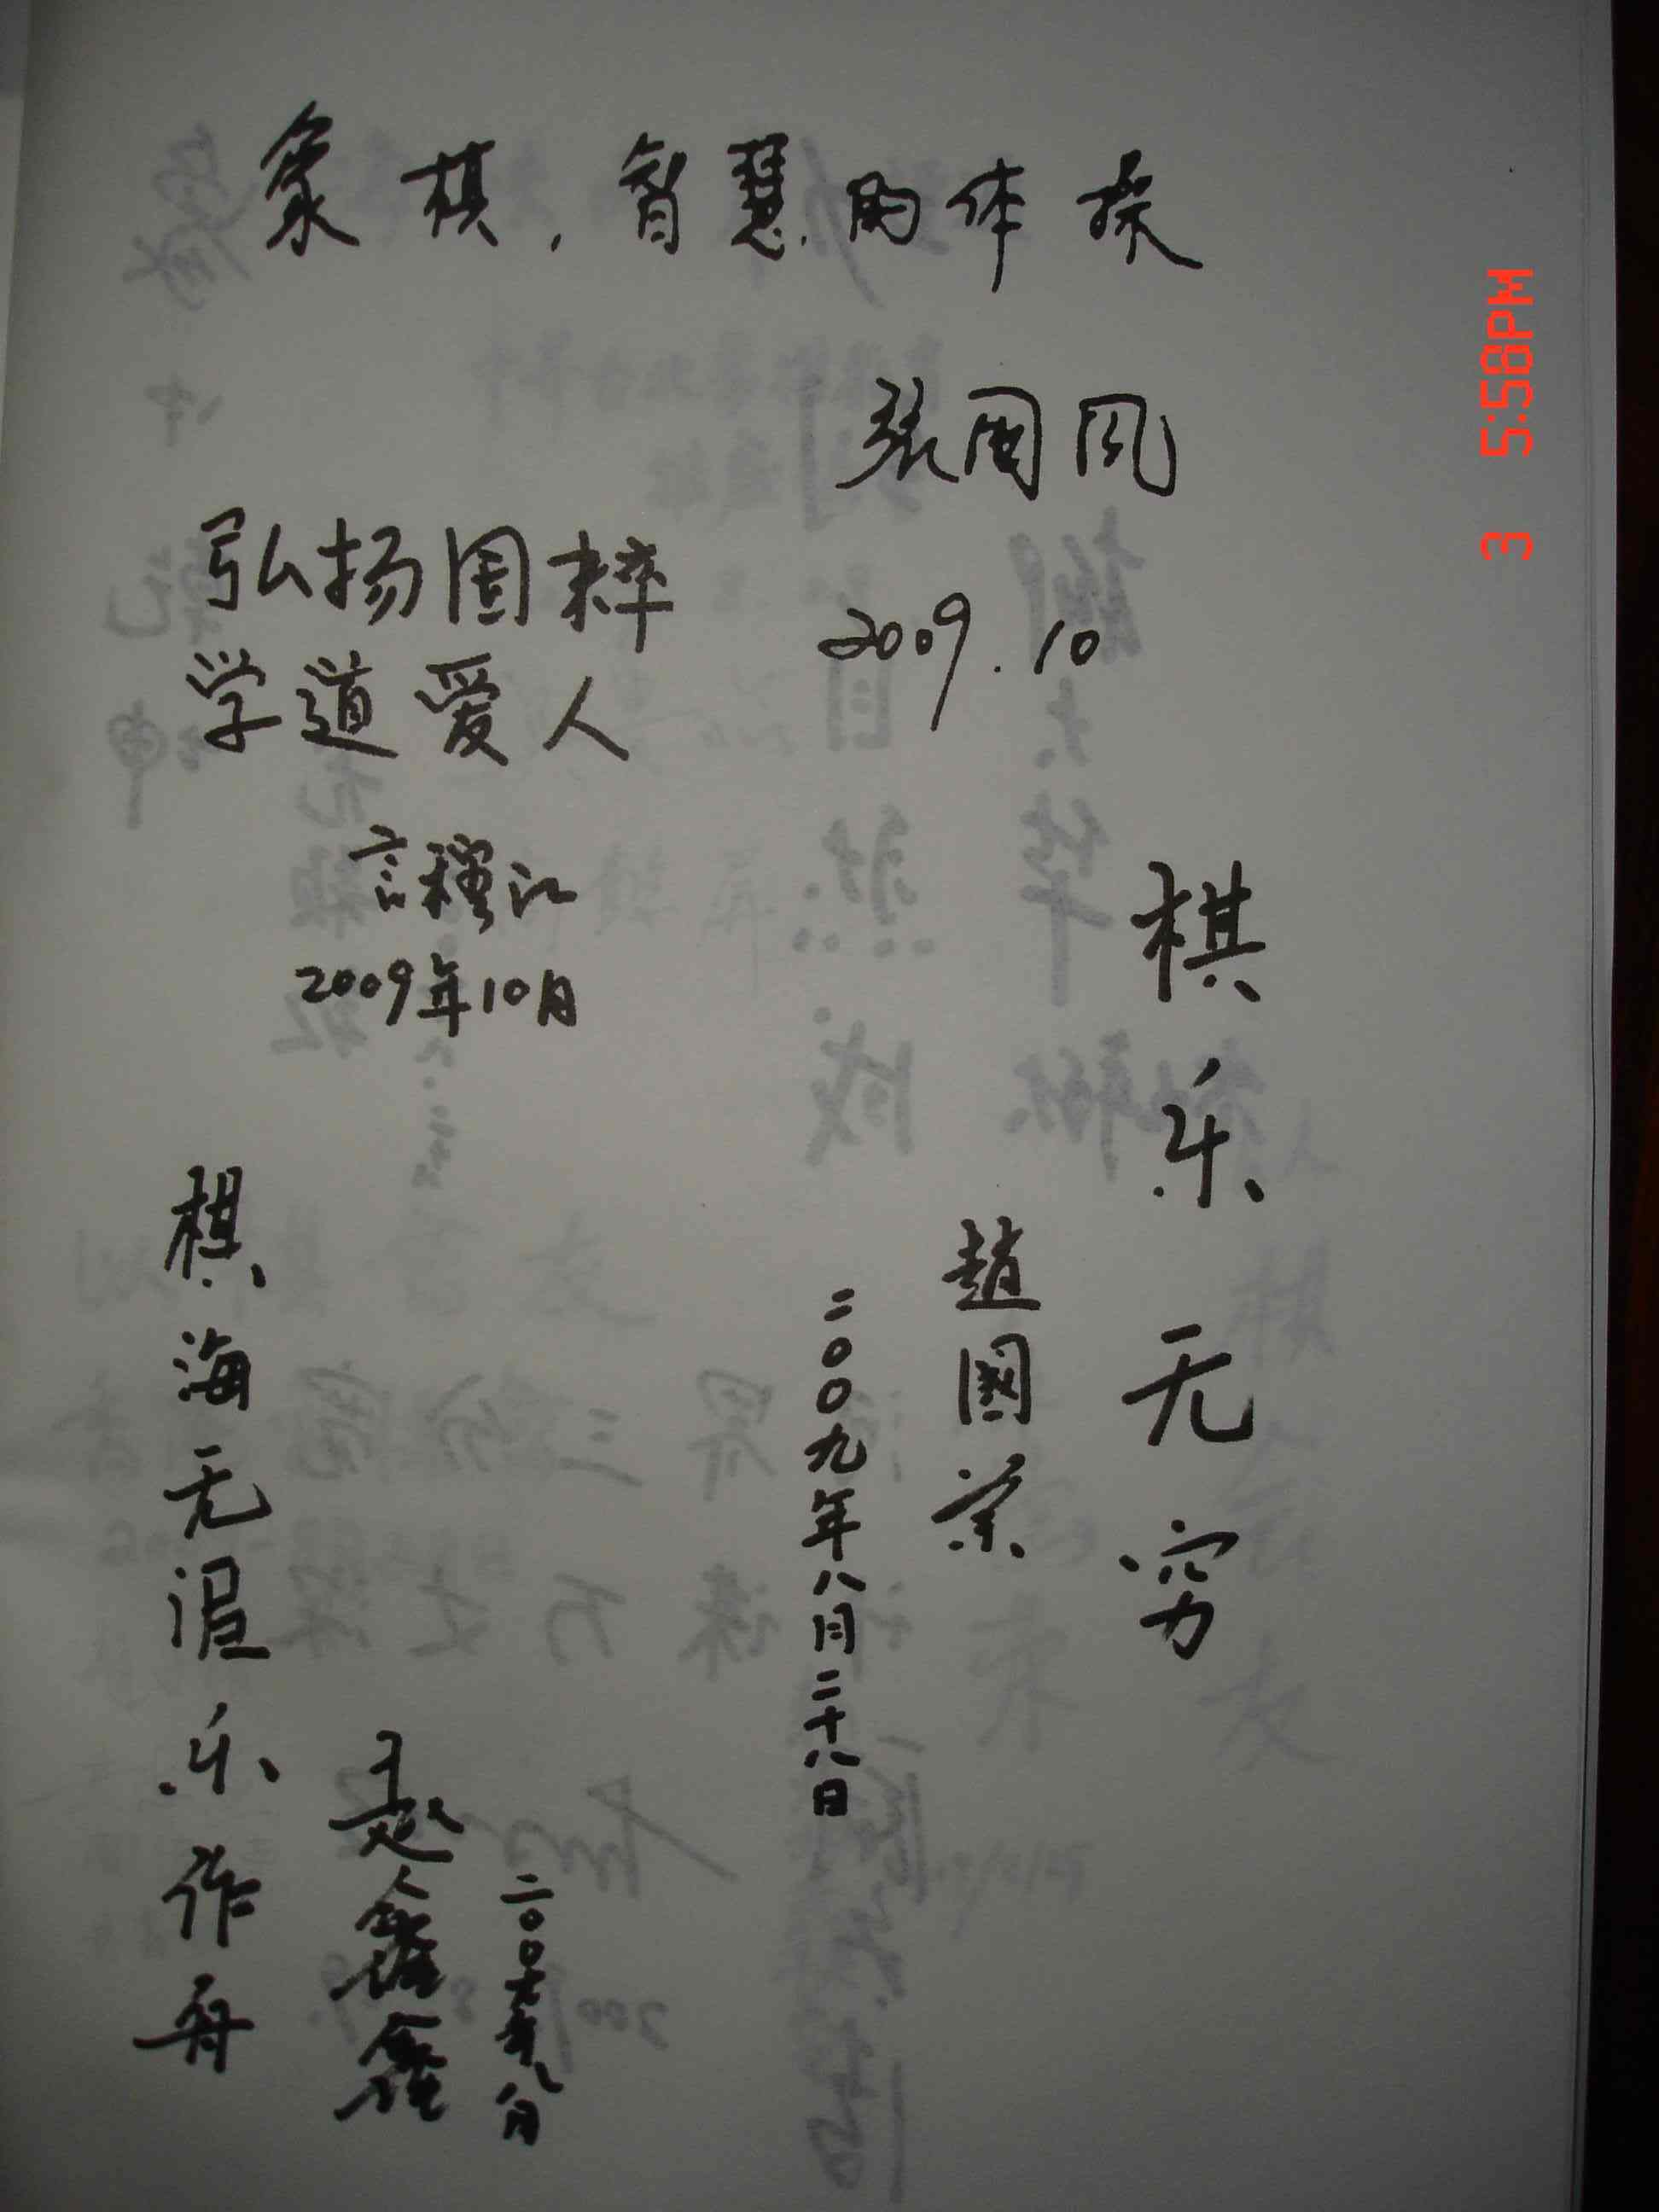 象棋,智慧的体操
张国凤
2009.10
弘扬国粹
学道爱人
言穆江
2009年10月
棋乐无穷
趙國荣
二〇〇九年八月二十八日
棋海无涯乐作舟
赵鑫鑫
3 5:58PM